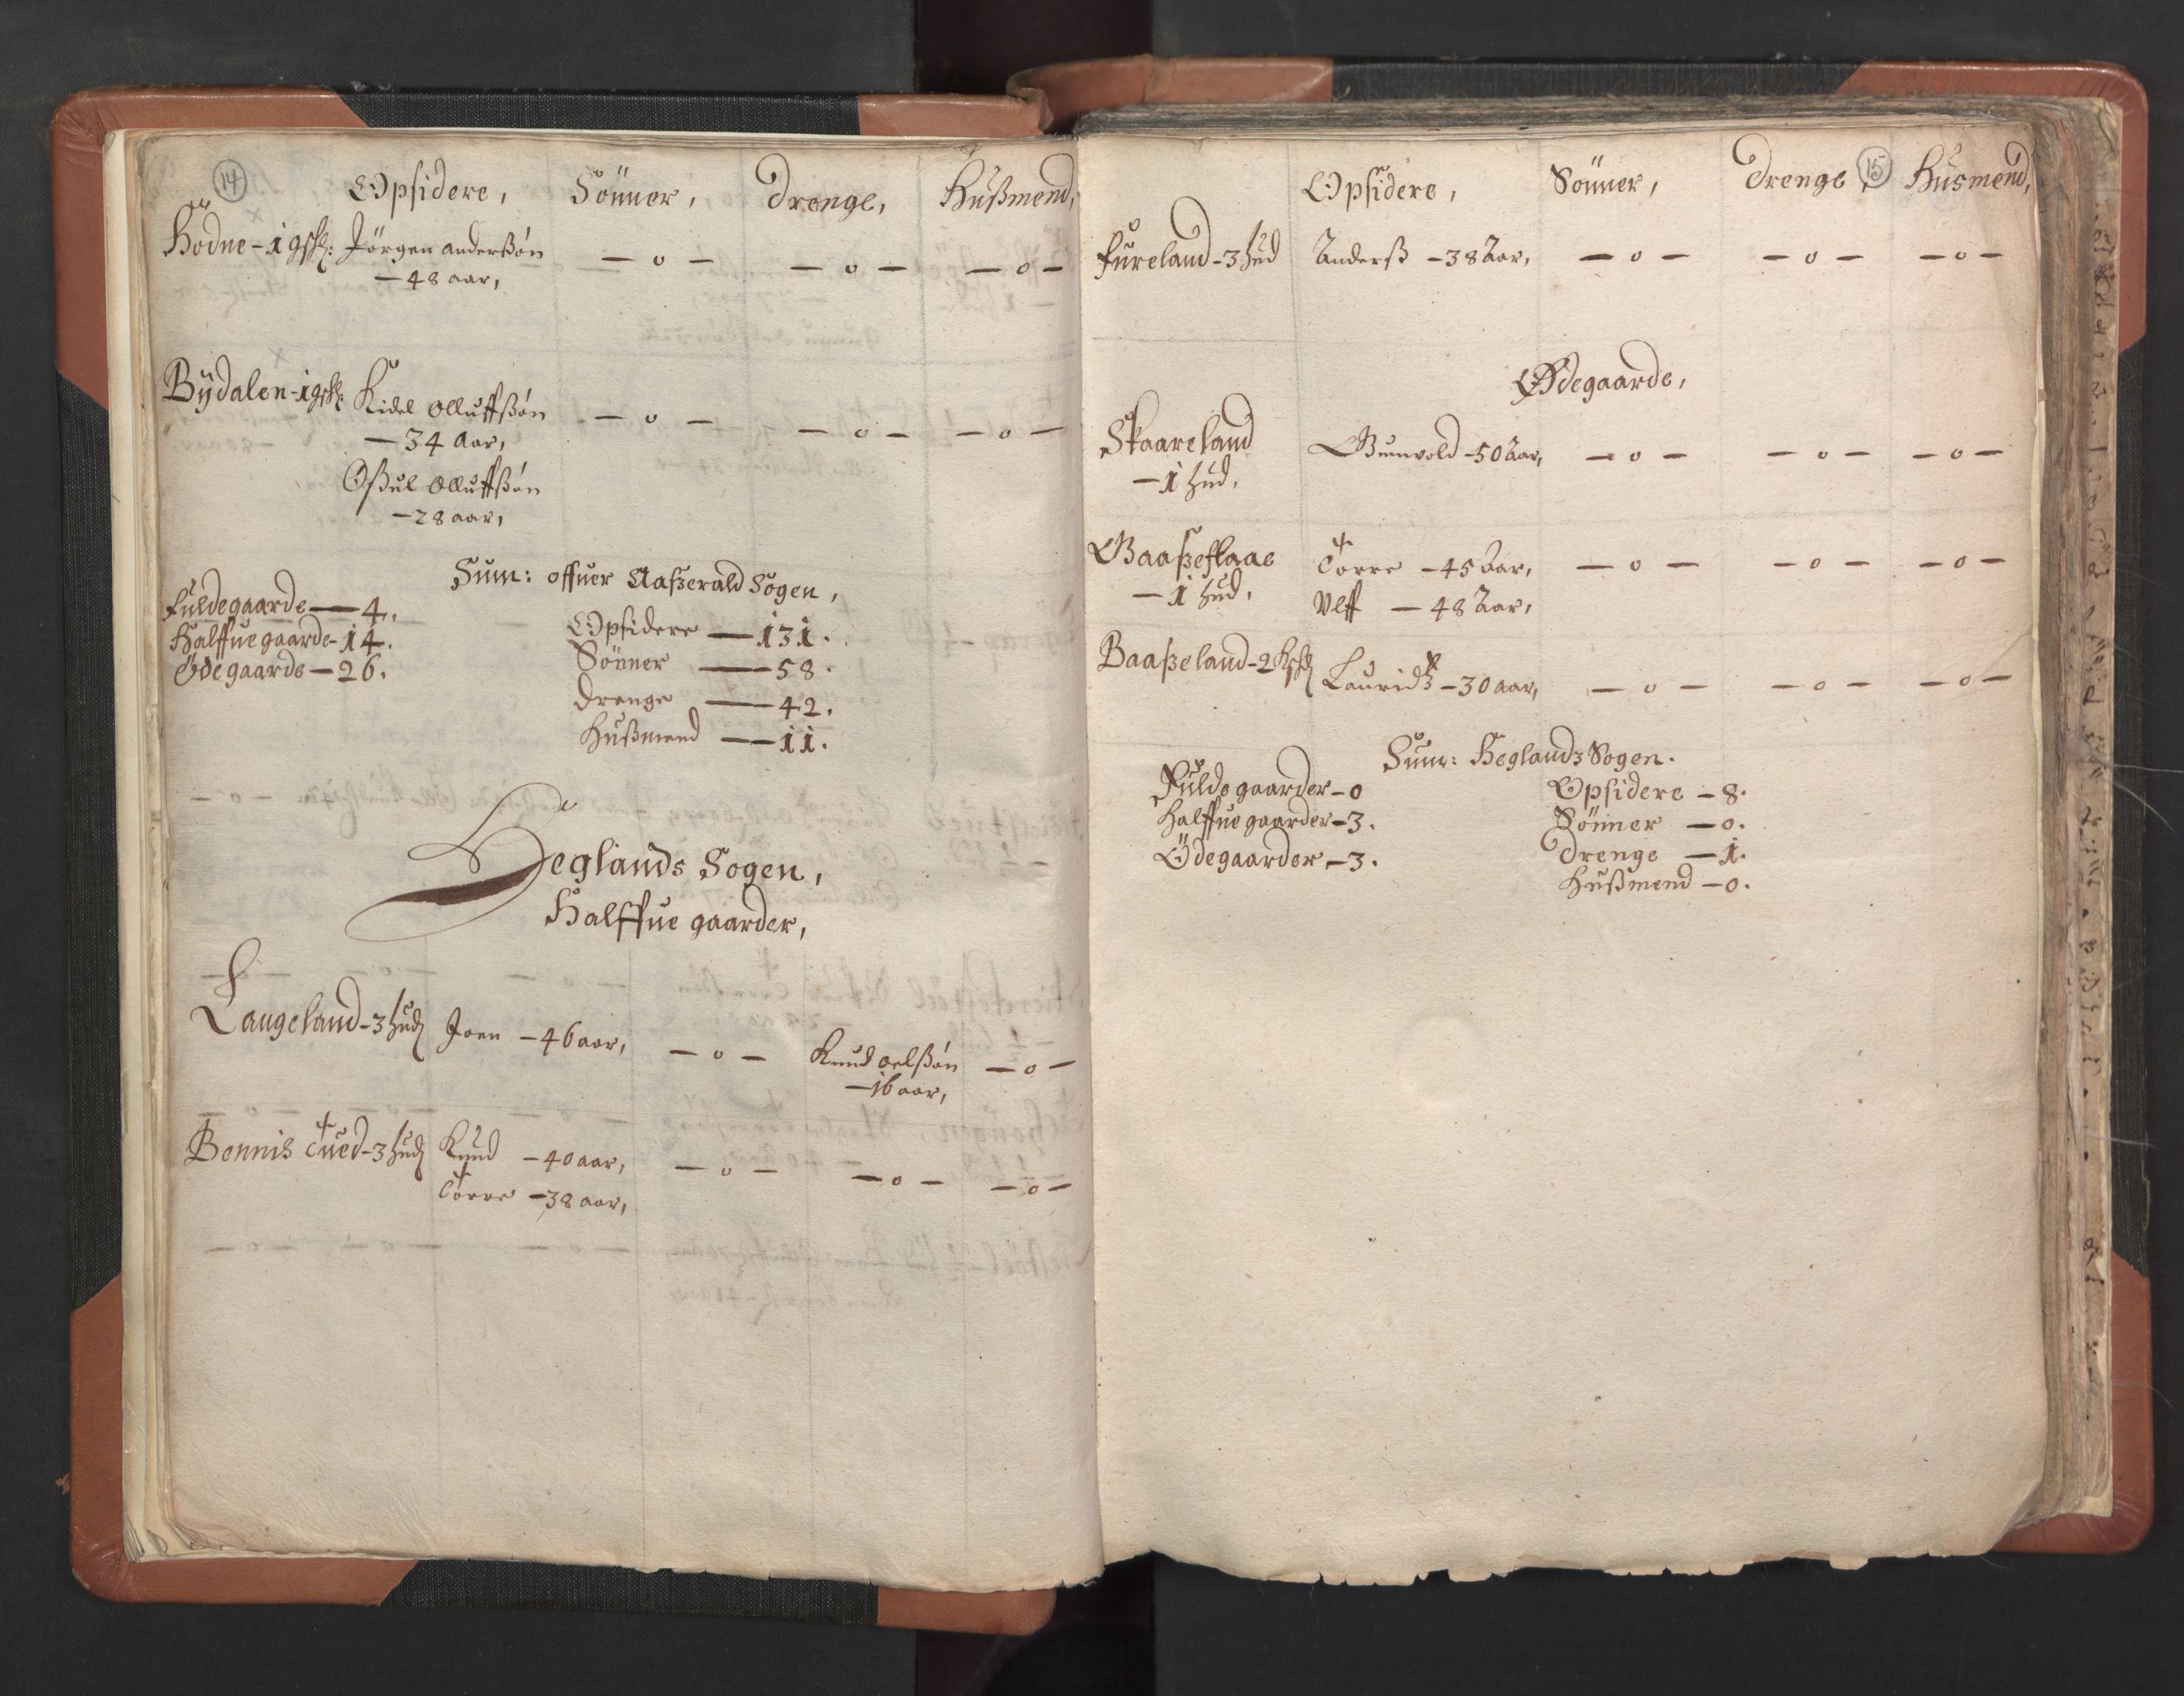 14
Opsidere, Sönner, Drenge, Hußmend,
Hödne - 1 gsk: Jörgen anderßön - o - - o - - o -
- 48 aar,
Bÿdalen - 1 gsk: Kidel Olluffßön - o - - o - - o -
- 34 Aar,
Oßul Olluffßön
- 28 aar,
Sum: offuer Aaßerald Sogen,
Fuldegaarde - 4.
Halffue gaarde - 14.
Öde gaarde - 26.
Opsidere - 131.
Sönner - 58.
Drenge - 42.
Hußmend - 11.
Heglands Sogen,
Halffue gaarder,
Langeland - 3 hud Joen - 46 aar, - o - Knud oelßön - o -
- 16 aar,
Bennis tued - 3 hud Knud - 40 aar, - o - - o - - o -
Torre - 38 aar,
15
Opsidere, Sönner, Drenge, Husmend,
Fureland - 3 hud Anderß - 38 Aar, - o - - o - - o -
Ødegaarde,
Skaareland Gunuold - 50 Aar, - o - - o - - o -
- 1 hud,
Gaaßeflaae Torre - 45 Aar, - o - - o - - o -
- 1 hud, Vlff - 48 Aar,
Baaßeland - 2 Lauridz - 30 aar, - o - - o - - o -
Sum: Heglandz Sogen.
Fulde gaarder - 0
Halffue gaarder - 3.
Ödegaarder - 3.
Opsidere - 8.
Sönner - 0.
Drenge - 1.
Hußmend - 0.